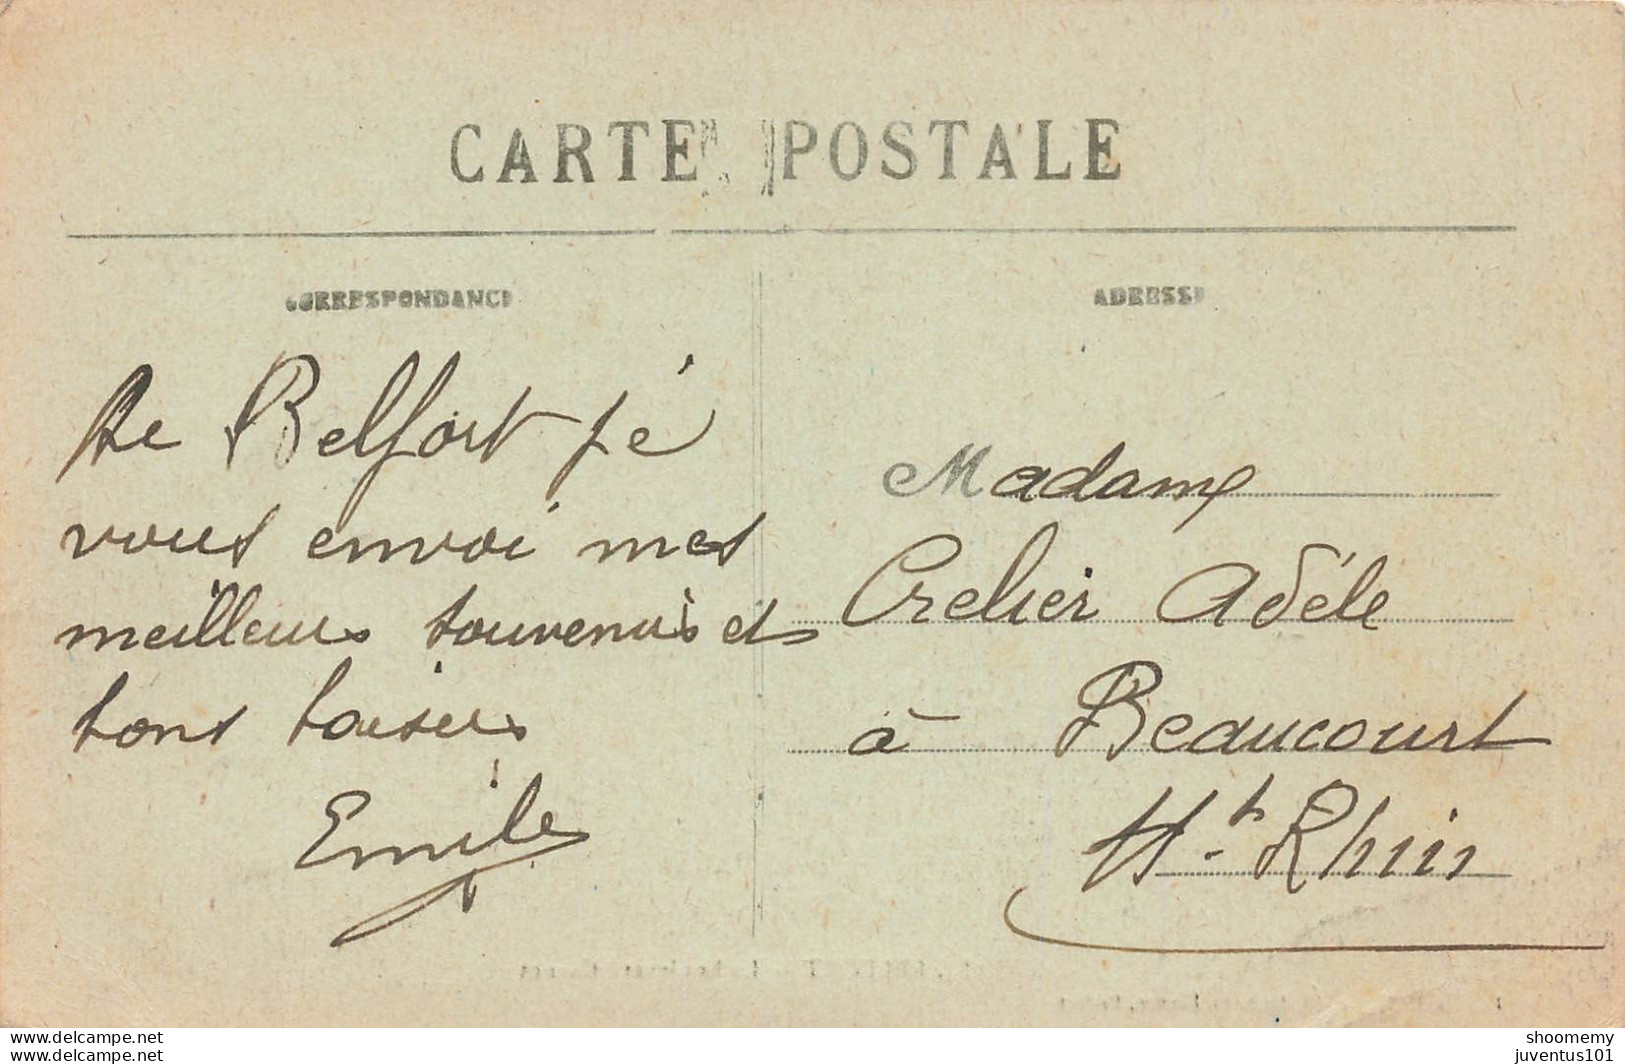 CARTE POSTALE
CORRESPONDANCE
De Belfort jé
vous envoi mes
meilleurs souvenirs et
bons baisers
Emile
ADRESSE
Madame
Crelier Adéle
à Beaucourt
Ht. Rhin
www.delcampe.net
juventus101
shoomemy
juventus101